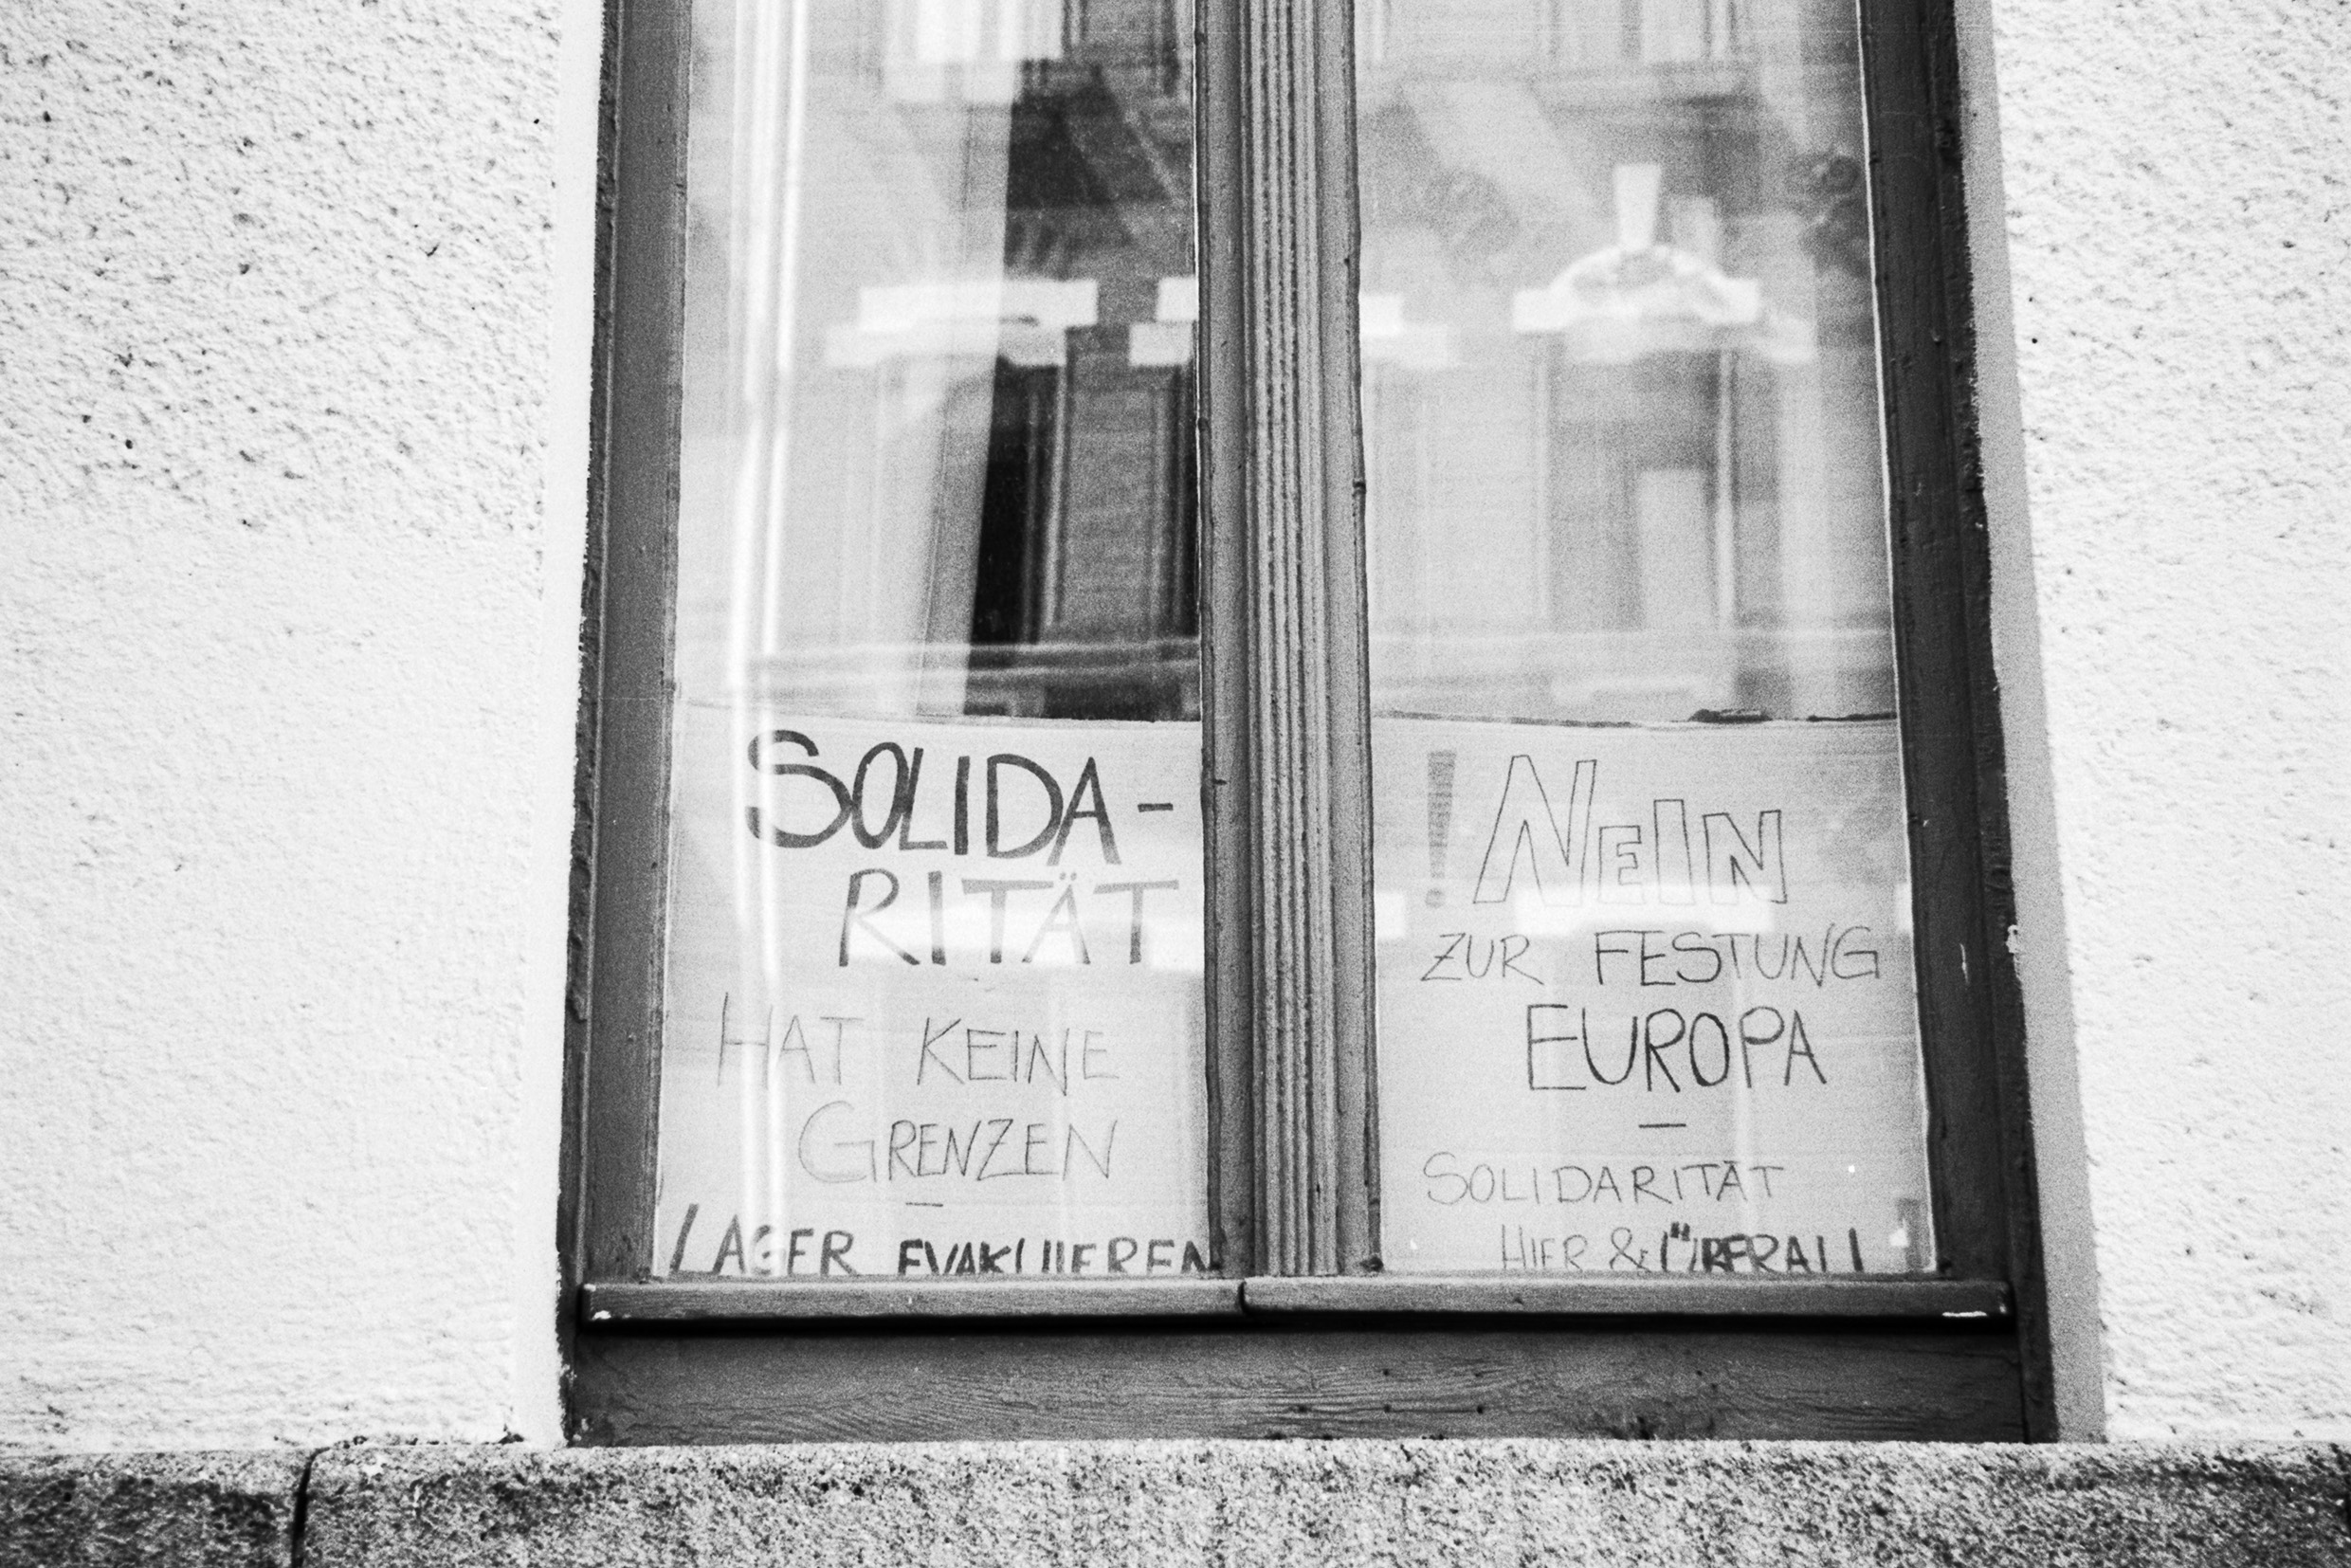 SOLIDA-
RITÄT
HAT KEINE
GRENZEN
—
LAGER EVAKUIEREN
! NEIN
ZUR FESTUNG
EUROPA
—
SOLIDARITÄT
HIER & ÜBERALL